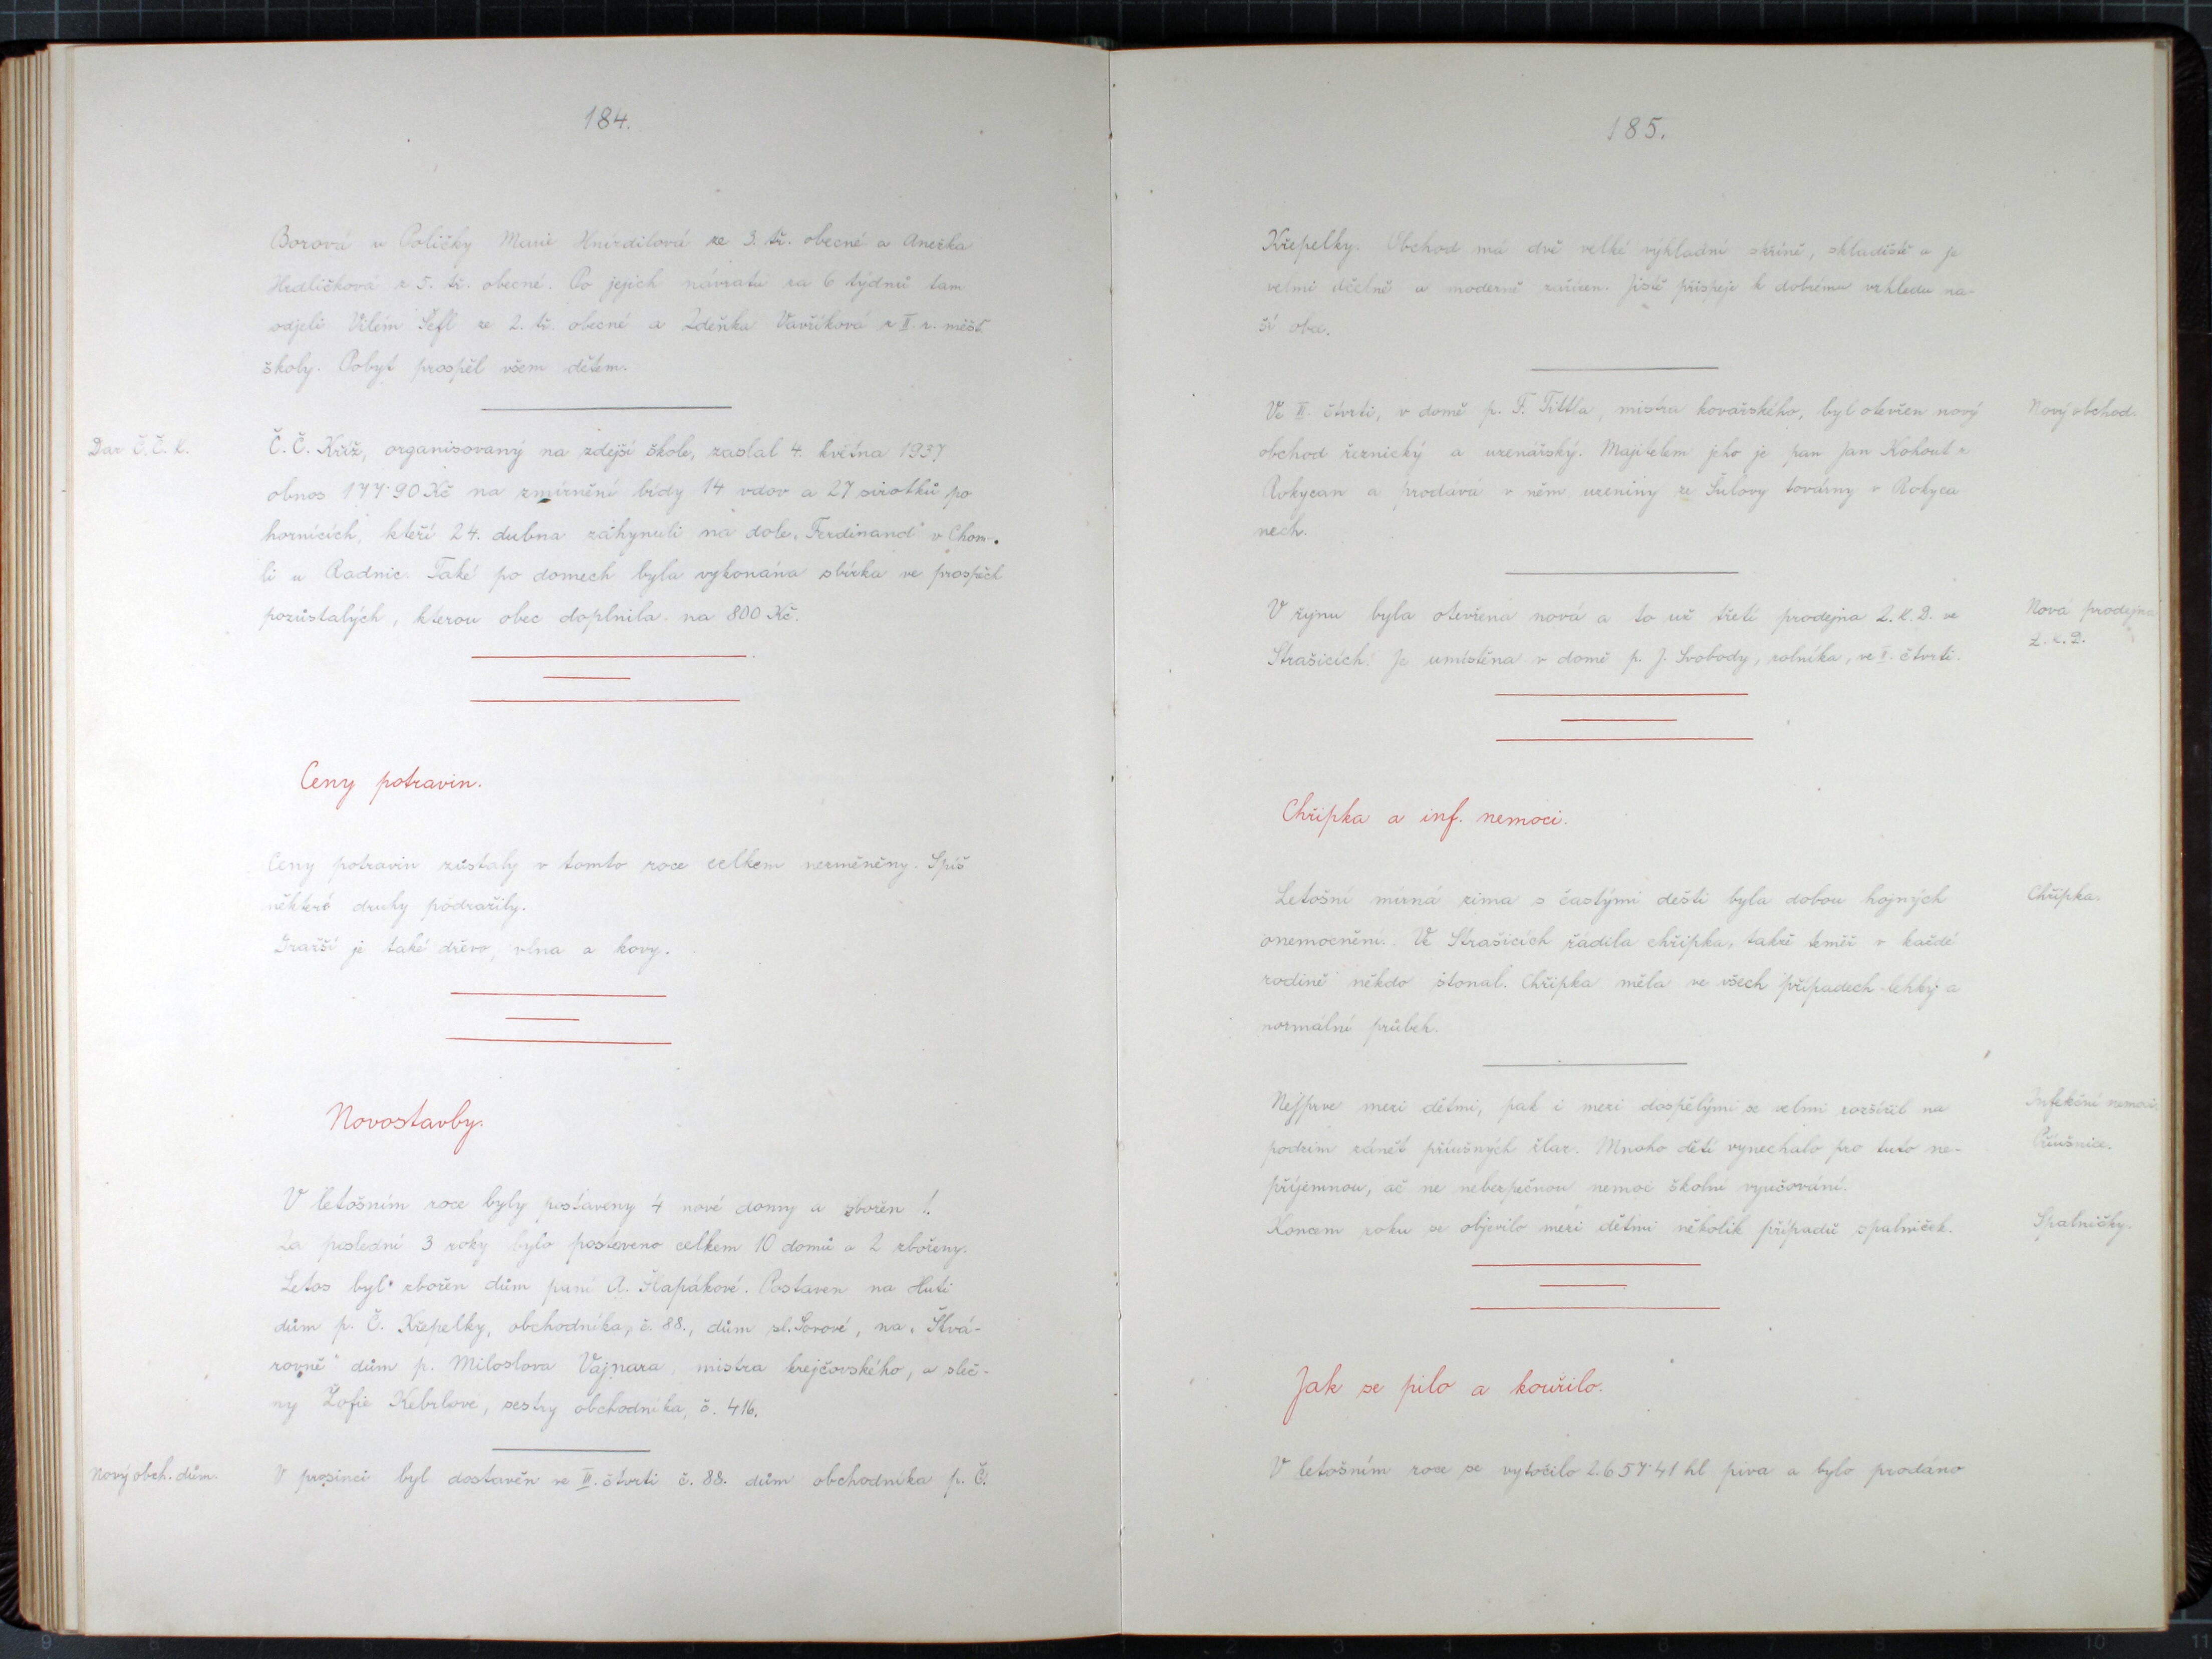 184.
Borová u Poličky Marie Hnízdilová ze 3. tř. obecné a Anežka
Hrdličková z 5. tř. obecné. Po jejich návratu za 6 týdnů tam
odjeli Vilém Šefl ze 2. tř. obecné a Zdeňka Vavříková z II. r. měšť.
školy. Pobyt prospěl všem dětem.
Dar Č. Č. K.
Č. Č. Kříž, organisovaný na zdejší škole, zaslal 4. května 1937
obnos 177·90 Kč na zmírnění bídy 14 vdov a 27 sirotků po
hornících, kteří 24. dubna záhynuli na dole „Ferdinand" v Chom-
li u Radnic. Také po domech byla vykonána sbírka ve prospěch
pozůstalých, kterou obec doplnila na 800 Kč.
Ceny potravin.
Ceny potravin zůstaly v tomto roce celkem nezměněny. Spíš
některé druhy podražily.
Dražší je také dřevo, vlna a kovy.
Novostavby.
V letošním roce byly postaveny 4 nové domy a zbořen 1.
Za poslední 3 roky bylo postaveno celkem 10 domů a 2 zbořeny.
Letos byl zbořen dům paní A. Šlapákové. Postaven na Huti
dům p. Č. Křepelky, obchodníka, č. 88., dům sl. Sovové, na „Štvá-
rovně" dům p. Miloslava Vajnara, mistra krejčovského, a sleč-
ny Žofie Kebrlové, sestry obchodníka, č. 416.
Nový obch. dům.
V prosinci byl dostavěn ve III. čtvrti č. 88. dům obchodníka p. Č.
185.
Křepelky. Obchod má dvě velké výkladní skříně, skladiště a je
velmi účelně a moderně zařízen. Jistě přispěje k dobrému vzhledu na-
ší obce.
Ve II. čtvrti, v domě p. F. Tittla, mistra kovářského, byl otevřen nový
obchod řeznický a uzenářský. Majitelem jeho je pan Jan Kohout z
Rokycan a prodává v něm uzeniny ze Šulovy továrny v Rokyca
nech.
Nový obchod.
V říjnu byla otevřena nová a to už třetí prodejna Z. K. D. ve
Strašicích. Je umístěna v domě p. J. Svobody, rolníka, ve I. čtvrti.
Nová prodejna
Z. K. D.
Chřipka a inf. nemoci.
Letošní mírná zima s častými dešti byla dobou hojných
onemocnění. Ve Strašicích řádila chřipka, takže téměř v každé
rodině někdo stonal. Chřipka měla ve všech případech lehký a
normální průběh.
Chřipka.
Nejprve mezi dětmi, pak i mezi dospělými se velmi rozšířil na
podzim zánět příušných žlaz. Mnoho dětí vynechalo pro tuto ne-
příjemnou, ač ne nebezpečnou nemoc školní vyučování.
Koncem roku se objevilo mezi dětmi několik případů spalniček.
Infekční nemoci.
Příušnice.
Spalničky.
Jak se pilo a kouřilo.
V letošním roce se vytočilo 2.657·41 hl piva a bylo prodáno